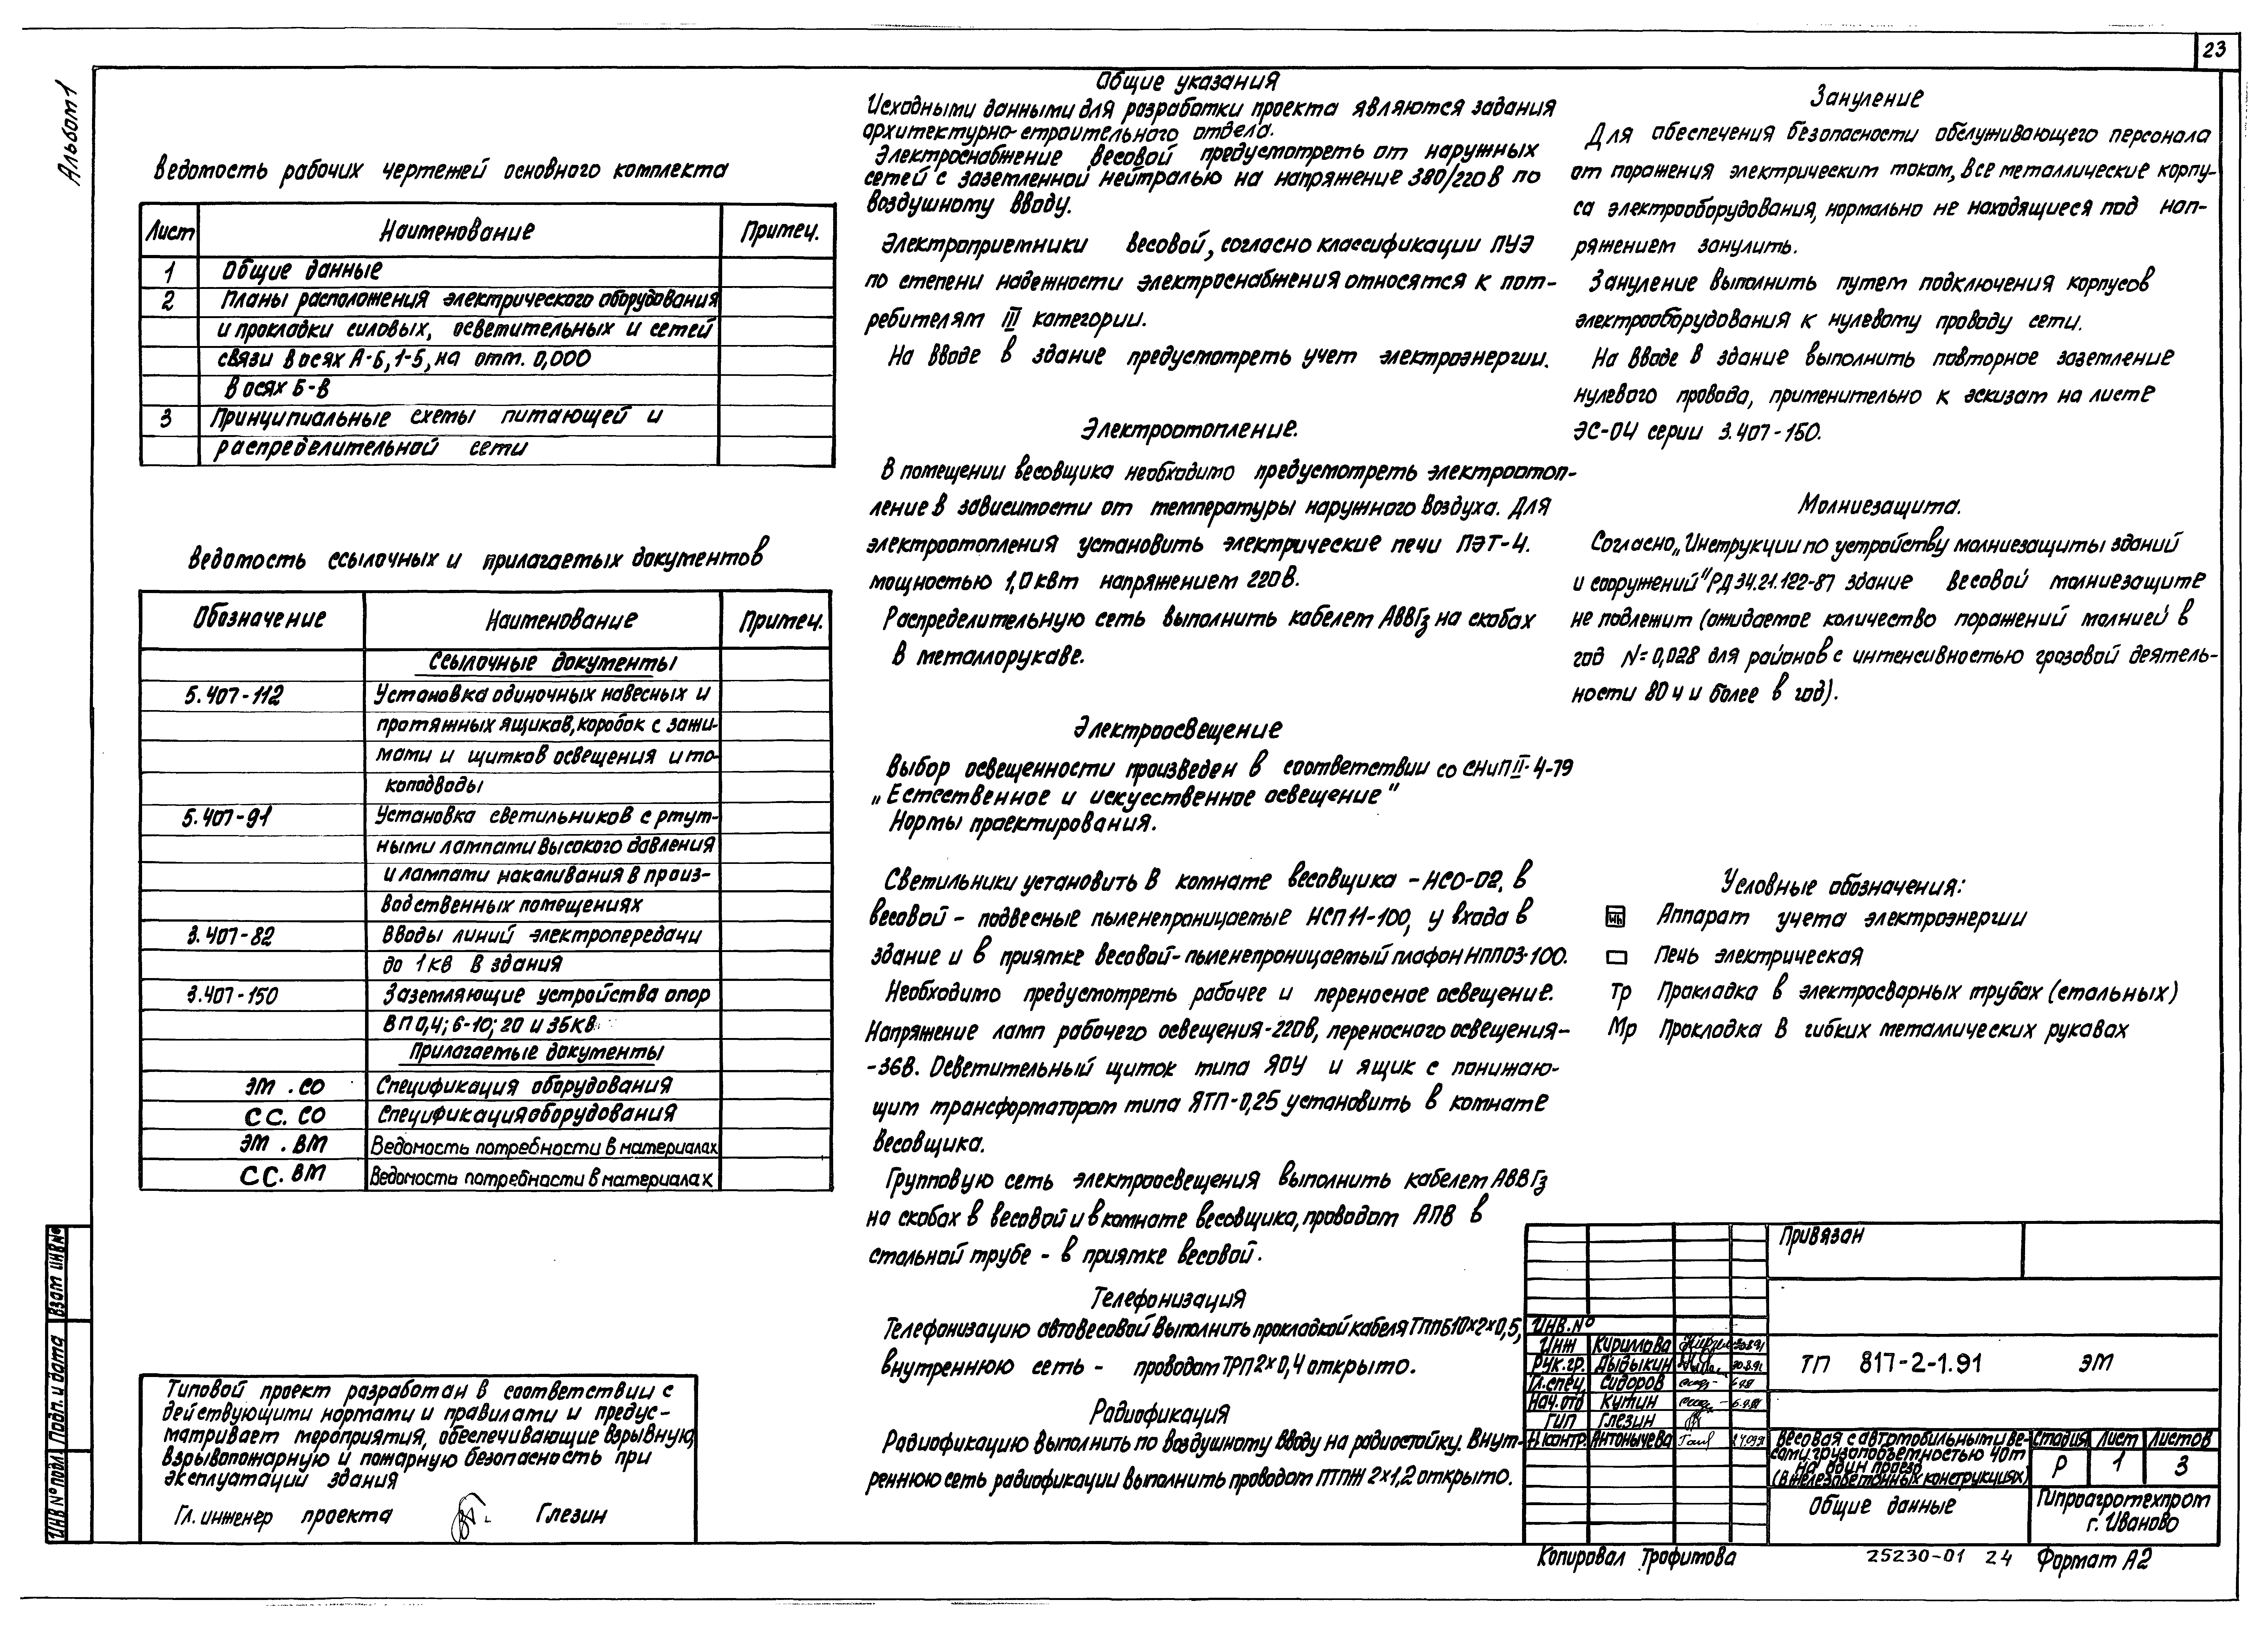 23
Альбом 1
Ведомость рабочих чертежей основного комплекта
Лист Наименование Примеч.
1 Общие данные
2 Планы расположения электрического оборудования
и прокладки силовых, осветительных и сетей
связи в осях А-Б, 1-5, на отм. 0,000
в осях Б-В
3 Принципиальные схемы питающей и
распределительной сети
Ведомость ссылочных и прилагаемых документов
Обозначение Наименование Примеч.
Ссылочные документы
5.407-112 Установка одиночных навесных и
протяжных ящиков, коробок с зажи-
мами и щитков освещения и то-
коподводы
5.407-91 Установка светильников с ртут-
ными лампами высокого давления
и лампами накаливания в произ-
водственных помещениях
3.407-82 Вводы линий электропередачи
до 1 кв в здания
3.407-150 Заземляющие устройства опор
ВЛ 0,4; 6-10; 20 и 35 кв
Прилагаемые документы
ЭМ . СО Спецификация оборудования
СС. СО Спецификация оборудования
ЭМ . ВМ Ведомость потребности в материалах
СС. ВМ Ведомость потребности в материалах
Типовой проект разработан в соответствии с
действующими нормами и правилами и предус-
матривает мероприятия, обеспечивающие взрывную,
взрывопожарную и пожарную безопасность при
эксплуатации здания
Гл. инженер проекта Глезин
Общие указания
Исходными данными для разработки проекта являются задания
архитектурно-строительного отдела.
Электроснабжение весовой предусмотреть от наружных
сетей с заземленной нейтралью на напряжение 380/220 В по
воздушному вводу.
Электроприемники весовой, согласно классификации ПУЭ
по степени надежности электроснабжения относятся к пот-
ребителям III категории.
На вводе в здание предусмотреть учет электроэнергии.
Электроотопление.
В помещении весовщика необходимо предусмотреть электроотоп-
ление в зависимости от температуры наружного воздуха. Для
электроотопления установить электрические печи ПЭТ-4.
мощностью 1,0 квт напряжением 220 В.
Распределительную сеть выполнить кабелем АВВГз на скобах
в металлорукаве.
Электроосвещение
Выбор освещенности произведен в соответствии со СНиП II-4-79
„Естественное и искусственное освещение"
Нормы проектирования.
Светильники установить в комнате весовщика - НСО-02, в
весовой - подвесные пыленепроницаемые НСП 11-100, у входа в
здание и в приямке весовой - пыленепроницаемый плафон НПП03-100.
Необходимо предусмотреть рабочее и переносное освещение.
Напряжение ламп рабочего освещения-220В, переносного освещения-
-36В. Осветительный щиток типа ЯОУ и ящик с понижаю-
щим трансформатором типа ЯТП-0,25 установить в комнате
весовщика.
Групповую сеть электроосвещения выполнить кабелем АВВГз
на скобах в весовой и в комнате весовщика, проводом АПВ в
стальной трубе - в приямке весовой.
Телефонизация
Телефонизацию автовесовой выполнить прокладкой кабеля ТППБ 10×2×0,5,
внутреннюю сеть - проводом ТРП 2×0,4 открыто.
Радиофикация
Радиофикацию выполнить по воздушному вводу на радиостойку. Внут-
реннюю сеть радиофикации выполнить проводом ПТПЖ 2×1,2 открыто.
Зануление
Для обеспечения безопасности обслуживающего персонала
от поражения электрическим током, все металлические корпу-
са электрооборудования, нормально не находящиеся под нап-
ряжением занулить.
Зануление выполнить путем подключения корпусов
электрооборудования к нулевому проводу сети.
На вводе в здание выполнить повторное заземление
нулевого провода, применительно к эскизам на листе
ЭС-04 серии 3.407-150.
Молниезащита.
Согласно „Инструкции по устройству молниезащиты зданий
и сооружений" РД 34.21.122-87 здание весовой молниезащите
не подлежит (ожидаемое количество поражений молнией в
год N=0,028 для районов с интенсивностью грозовой деятель-
ности 80 ч и более в год).
Условные обозначения:
Wh Аппарат учета электроэнергии
Печь электрическая
Тр Прокладка в электросварных трубах (стальных)
Мр Прокладка в гибких металлических рукавах
Привязан
ИНВ. №
Инж Кириллова 30.8.91
Рук.гр. Дыдыкин 30.8.91
Гл.спец. Сидоров
Нач.отд Кутин
ГИП Глезин
Н.контр. Антонычева
ТП 817-2-1.91 ЭМ
Весовая с автомобильными ве-
сами грузоподъемностью 40т
на один проезд
(в железобетонных конструкциях)
Стадия Лист Листов
Р 1 3
Общие данные
Гипроагротехпром
г. Иваново
Копировал Трофимова 25230-01 24 Формат А2
Взам инв №
Подп. и дата
ИНВ № подл.